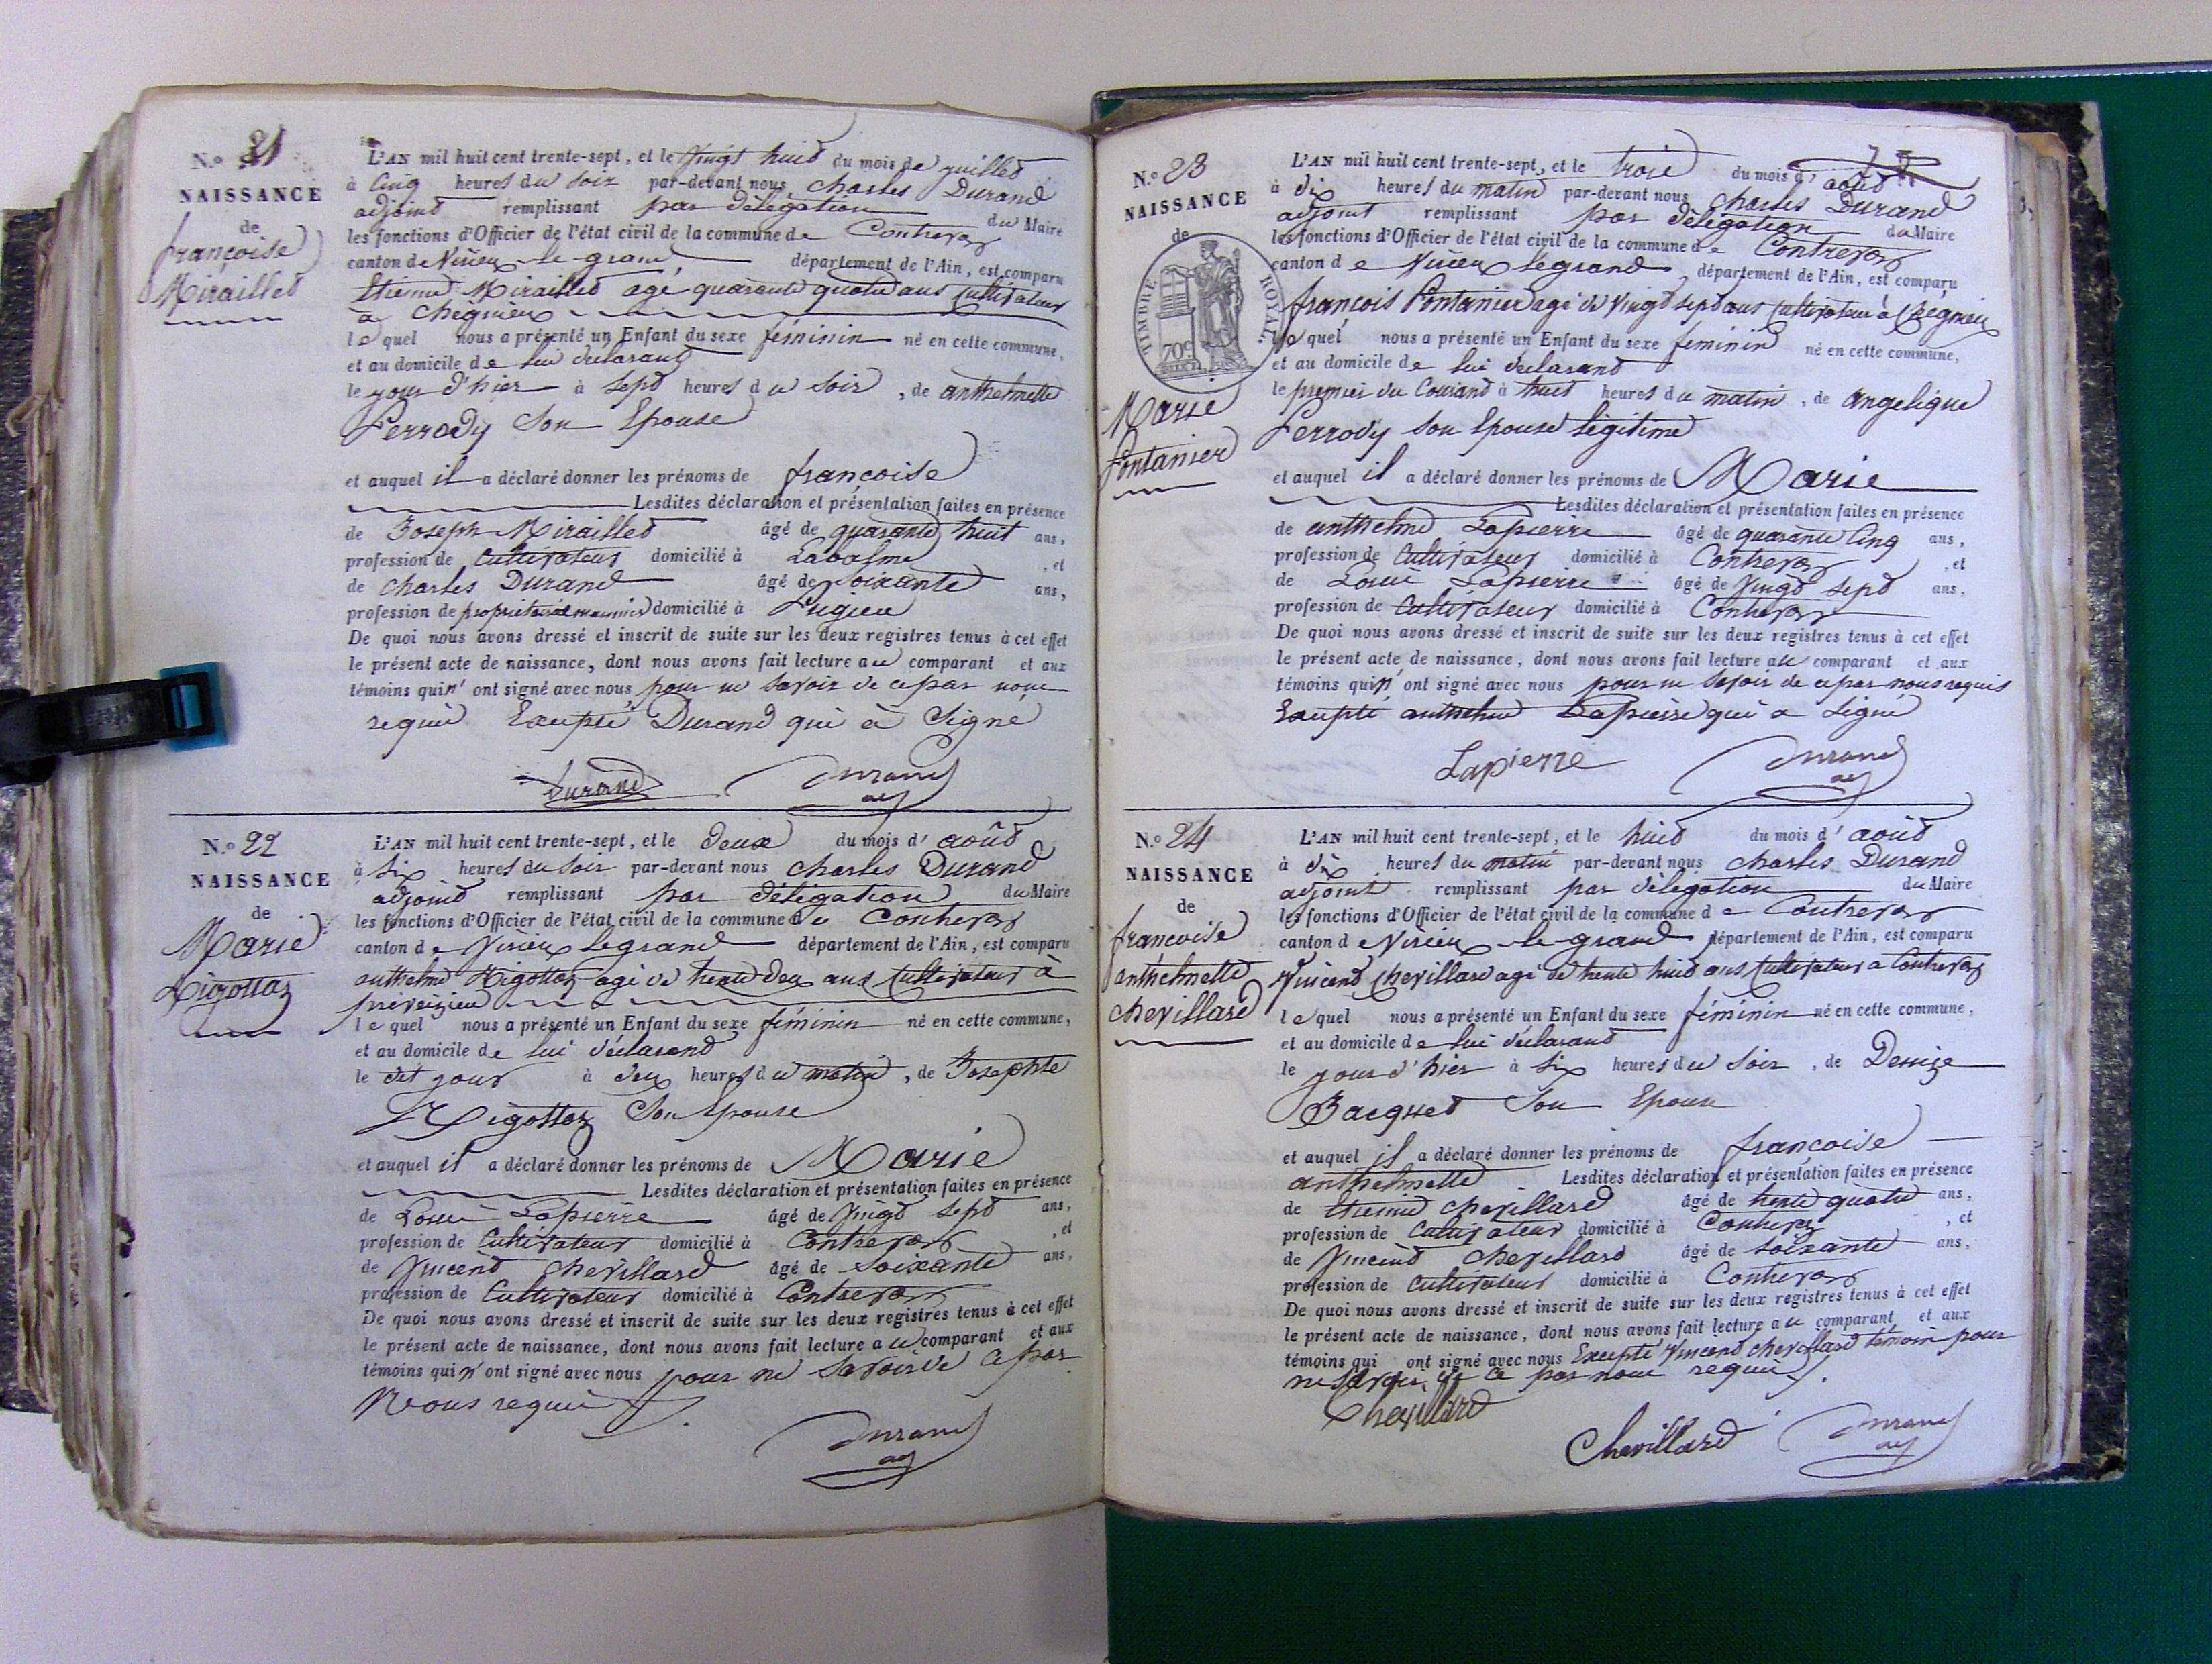 N.o 21
NAISSANCE
de
françoise
Miraillet
L'AN mil huit cent trente-sept, et le Vingt huit du mois de juillet
à Cinq heures du soir par-devant nous Charles Durand
adjoint remplissant par délégation du Maire
les fonctions d'Officier de l'état civil de la commune de Contrevoz
canton de Virieu le grand département de l'Ain, est comparu
Etienne Miraillet agé quarante quatre ans Cultivateur
a Chegnieu
le quel nous a présenté un Enfant du sexe féminin né en cette commune,
et au domicile de lui déclarant
le jour d'hier à sept heures du soir, de anthelmette
Perrody Son Epouse
et auquel il a déclaré donner les prénoms de françoise
Lesdites déclaration et présentation faites en présence
de Joseph Miraillet âgé de quarante huit ans,
profession de Cultivateur domicilié à Labalme, et
de Charles Durand âgé de Soixante ans,
profession de propriétaire domicilié à Pugieu
De quoi nous avons dressé et inscrit de suite sur les deux registres tenus à cet effet
le présent acte de naissance, dont nous avons fait lecture au comparant et aux
témoins qui n'ont signé avec nous pour ne savoir de ce par nous
requis Excepté Durand qui à Signé
Durand Durand adj
N.o 22
NAISSANCE
de
Marie
Rigottaz
L'AN mil huit cent trente-sept, et le Deux du mois d'août
à Six heures du Soir par-devant nous Charles Durand
adjoint remplissant par délégation du Maire
les fonctions d'Officier de l'état civil de la commune de Contrevoz
canton de Virieu legrand département de l'Ain, est comparu
anthelme Rigottaz agé de trente deux ans Cultivateur à
preveizieu
le quel nous a présenté un Enfant du sexe féminin né en cette commune,
et au domicile de lui déclarant
le dit jour à deux heures du matin, de Josephte
Rigottaz Son Epouse
et auquel il a déclaré donner les prénoms de Marie
Lesdites déclaration et présentation faites en présence
de Louis Lapierre âgé de Vingt sept ans,
profession de Cultivateur domicilié à Contrevoz, et
de Vincent Chevillard âgé de Soixante ans,
profession de Cultivateur domicilié à Contrevoz
De quoi nous avons dressé et inscrit de suite sur les deux registres tenus à cet effet
le présent acte de naissance, dont nous avons fait lecture au comparant et aux
témoins qui n'ont signé avec nous pour ne Savoir de ce par
Nous requis
Durand adj
N.o 23
NAISSANCE
de
TIMBRE ROYAL
70c
Marie
Pontanier
L'AN mil huit cent trente-sept, et le trois du mois d'août
à dix heures du matin par-devant nous Charles Durand
adjoint remplissant par délégation du Maire
les fonctions d'Officier de l'état civil de la commune de Contrevoz
canton de Virieu legrand département de l'Ain, est comparu
françois Pontanier agé de Vingt sept ans Cultivateur à Chegnieu
le quel nous a présenté un Enfant du sexe féminin né en cette commune,
et au domicile de lui déclarant
le premier du Courant à huit heures du matin, de angelique
Perrody son Epouse légitime
et auquel il a déclaré donner les prénoms de Marie
Lesdites déclaration et présentation faites en présence
de anthelme Lapierre âgé de quarante Cinq ans,
profession de Cultivateur domicilié à Contrevoz, et
de Louis Lapierre âgé de Vingt sept ans,
profession de Cultivateur domicilié à Contrevoz
De quoi nous avons dressé et inscrit de suite sur les deux registres tenus à cet effet
le présent acte de naissance, dont nous avons fait lecture au comparant et aux
témoins qui n'ont signé avec nous pour ne savoir de ce par nous requis
Excepté anthelme Lapierre qui a signé
Lapierre Durand adj
N.o 24
NAISSANCE
de
francoise
anthelmette
chevillard
L'AN mil huit cent trente-sept, et le huit du mois d'août
à dix heures du matin par-devant nous Charles Durand
adjoint remplissant par délégation du Maire
les fonctions d'Officier de l'état civil de la commune de Contrevoz
canton de Virieu le grand département de l'Ain, est comparu
Vincent Chevillard agé de trente huit ans Cultivateur a Contrevoz
le quel nous a présenté un Enfant du sexe féminin né en cette commune,
et au domicile de lui déclarant
le jour d'hier à Six heures du Soir, de Denize
Jacquet Son Epouse
et auquel il a déclaré donner les prénoms de françoise
anthelmette Lesdites déclaration et présentation faites en présence
de Etienne Chevillard âgé de trente quatre ans,
profession de Cultivateur domicilié à Contrevoz, et
de Vincent Chevillard âgé de Soixante ans,
profession de Cultivateur domicilié à Contrevoz
De quoi nous avons dressé et inscrit de suite sur les deux registres tenus à cet effet
le présent acte de naissance, dont nous avons fait lecture au comparant et aux
témoins qui ont signé avec nous Excepté Vincent Chevillard témoin pour
ne Savoir de ce par nous requis
Chevillard
Chevillard Durand adj